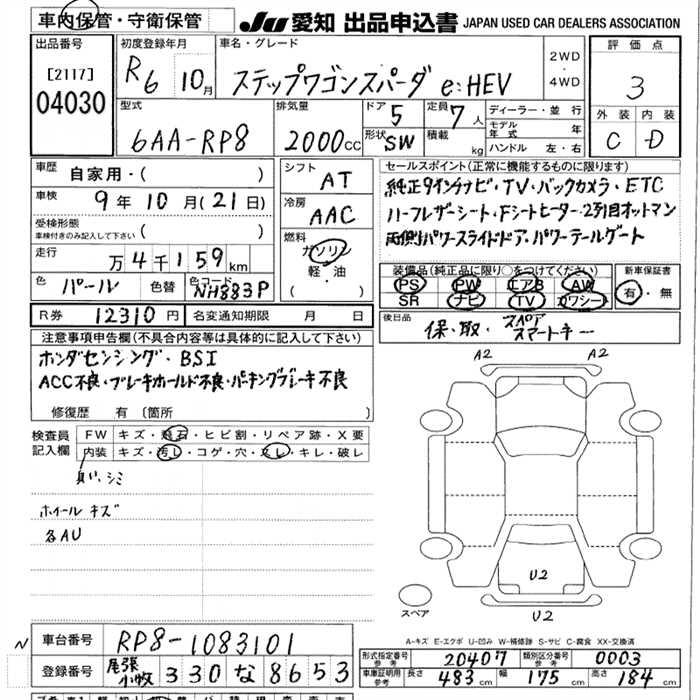 車内保管・守衛保管
JU 愛知 出品申込書 JAPAN USED CAR DEALERS ASSOCIATION
出品番号
[2117]
04030
初度登録年月
R6 10月
車名・グレード
ステップワゴンスパーダ e:HEV
2WD
・
4WD
評価点
3
外装 内装
C D
型式
6AA-RP8
排気量
2000cc
ドア 5
形状 SW
定員 7人
積載 kg
ディーラー・並行
モデル年式 年
ハンドル 左・右
車歴
自家用・( )
車検
9年10月(21日)
受検形態
車検付きのみ記入して下さい
( )
走行
万4千159km
色 パール 色替 色コード NH883P
シフト
AT
冷房
AAC
燃料
ガソリン
軽・油
( )
セールスポイント(正常に機能するものに限ります)
純正9インチナビ・TV・バックカメラ・ETC
ハーフレザーシート・Fシートヒーター・2列目オットマン
両側パワースライドドア・パワーテールゲート
装備品(純正品に限り○をつけてください)
PS PW エアB AW
SR ナビ TV カワシート
新車保証書
有・無
R券 12310円 名変通知期限 月 日
後日品
保・取・スペアスマートキー
注意事項申告欄(不具合内容等は具体的に記入して下さい)
ホンダセンシング・BSI
ACC不良・ブレーキホールド不良・パーキングブレーキ不良
修復歴 有 〔箇所 〕
検査員記入欄
FW キズ・飛石・ヒビ割・リペア跡・X要
内装 キズ・汚レ・コゲ・穴・スレ・キレ・破レ
臭い、シミ
ホイール キズ
各AU
A2 A2
U2
U2
スペア
A-キズ E-エクボ U-凹み W-補修跡 S-サビ C-腐食 XX-交換済
N
車台番号 RP8-1083101
登録番号 尾張小牧 330 な 8653
形式指定番号参考 20407 類別区分番号参考 0003
車庫証明用参考 長さ 483cm 幅 175cm 高さ 184cm